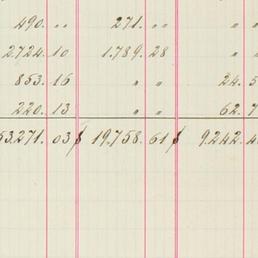 490. " " 271. " " " "
2.724. 10 1.789. 28 " "
853. 16 " " 24. 5
220. 13 " " 62. 7
53.271. 03 $ 19.758. 61 $ 9.242. 4